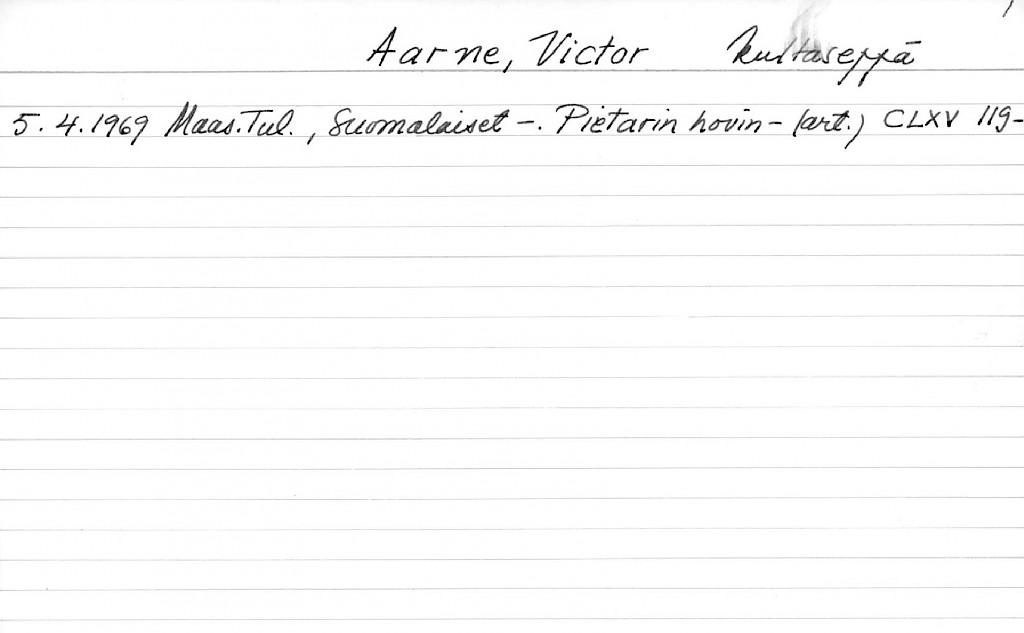 1
Aarne, Victor kultaseppä
5.4.1969 Maas.Tul., Suomalaiset -. Pietarin hovin - (art.) CLXV 119-